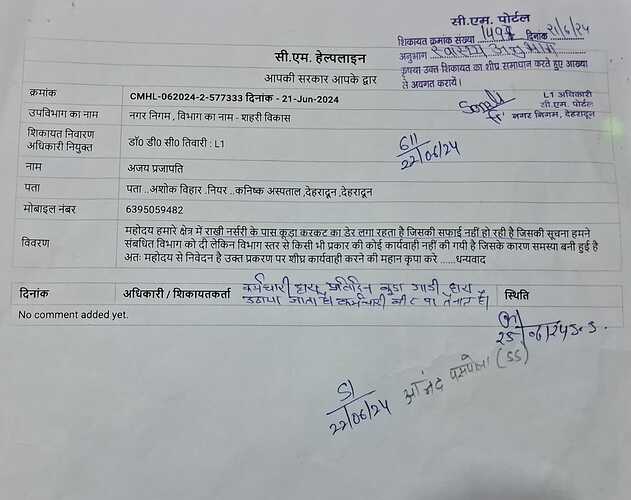 सी.एम. पोर्टल
शिकायत क्रमांक संख्या 1497 दिनांक 21/6/24
अनुभाग स्वास्थ्य अनुभाग
कृपया उक्त शिकायत का शीघ्र समाधान करते हुए आख्या
से अवगत करायें।
L1 अधिकारी
सी.एम. पोर्टल
नगर निगम, देहरादून
सी.एम. हेल्पलाइन
आपकी सरकार आपके द्वार
क्रमांक CMHL-062024-2-577333 दिनांक - 21-Jun-2024
उपविभाग का नाम नगर निगम , विभाग का नाम - शहरी विकास
शिकायत निवारण
अधिकारी नियुक्त डॉ0 डी0 सी0 तिवारी : L1
22/06/24
नाम अजय प्रजापति
पता पता ..अशोक विहार .नियर ..कनिष्क अस्पताल ,देहरादून ,देहरादून
मोबाइल नंबर 6395059482
विवरण
महोदय हमारे क्षेत्र में राखी नर्सरी के पास कूड़ा करकट का डेर लगा रहता है जिसकी सफाई नहीं हो रही है जिसकी सूचना हमने
संबधित विभाग को दी लेकिन विभाग स्तर से किसी भी प्रकार की कोई कार्यवाही नहीं की गयी है जिसके कारण समस्या बनी हुई है
अतः महोदय से निवेदन है उक्त प्रकरण पर शीघ्र कार्यवाही करने की महान कृपा करे ......धन्यवाद
दिनांक अधिकारी / शिकायतकर्ता स्थिति
कर्मचारी द्वारा प्रतिदिन कूडा गाडी द्वारा
उठाया जाता है। कर्मचारी तैनात है।
No comment added yet.
22/06/24
आनंद (SS)